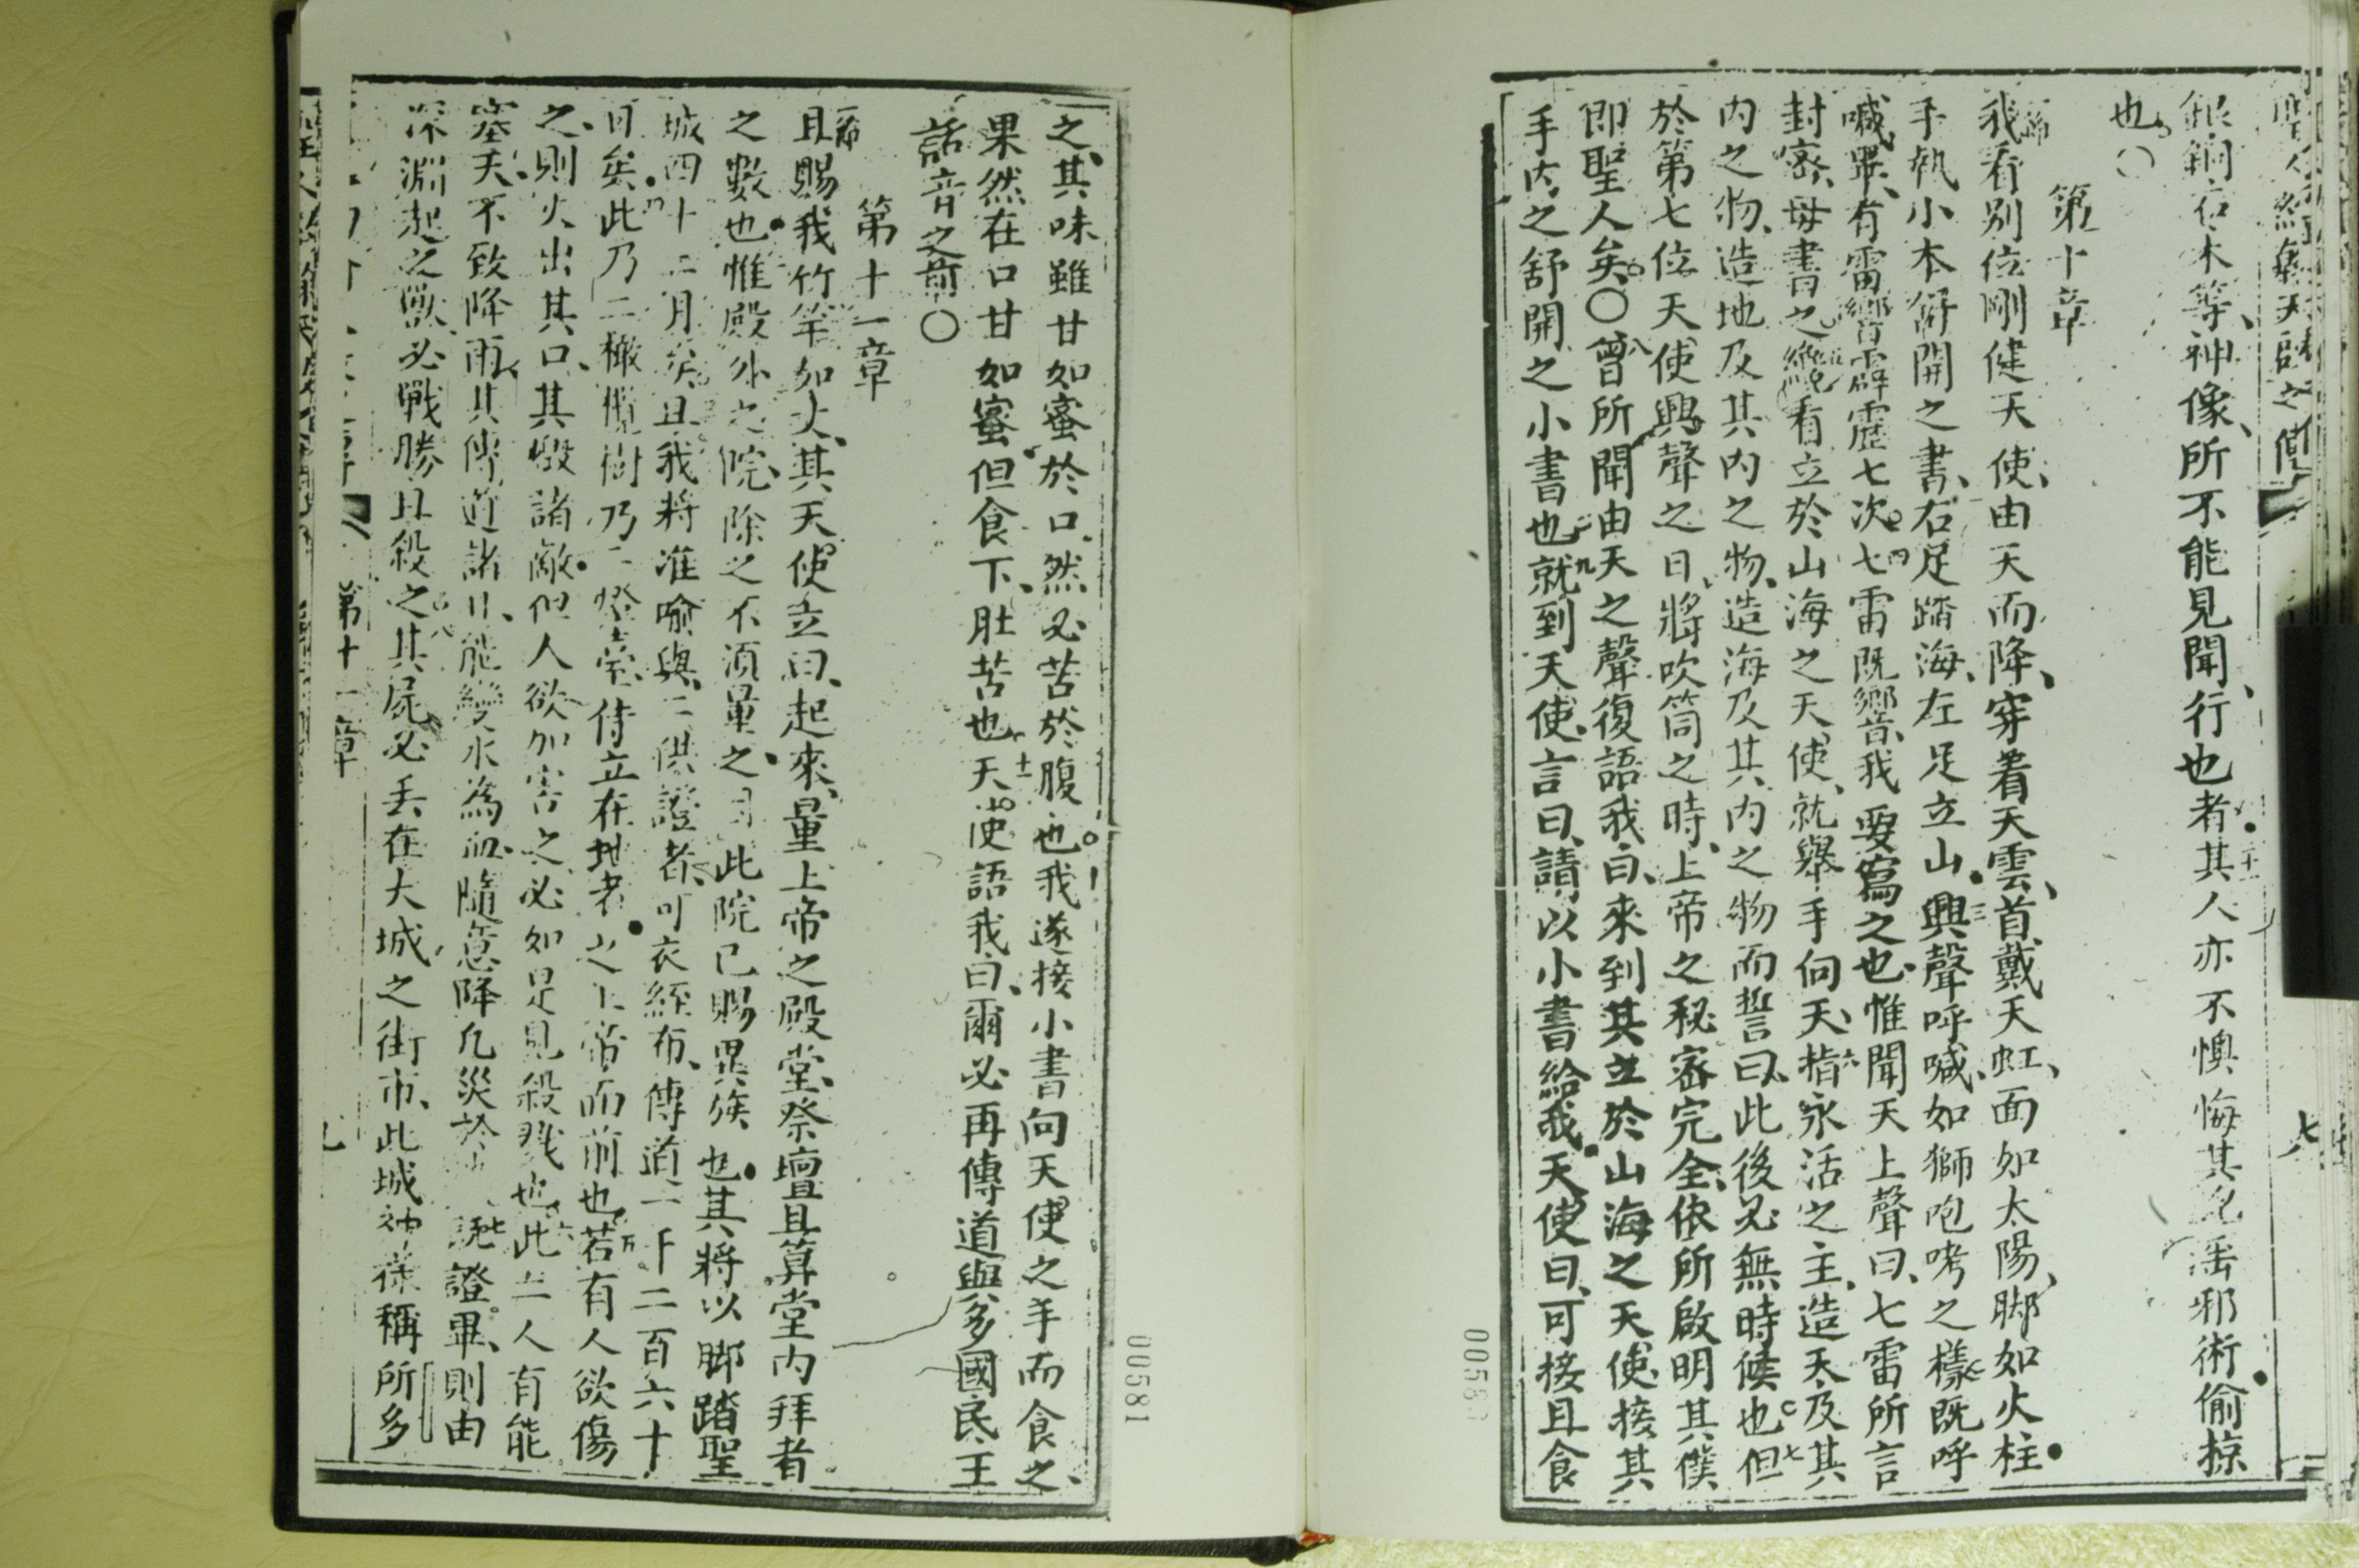 銀銅石木等神像、所不能見聞、行也者其人亦不懊悔其兇淫邪術偷掠
也○
第十章
我看別位剛健天使、由天而降、穿着天雲、首戴天虹、面如太陽、脚如火柱
手執小本舒開之書、右足踏海、左足立山興聲呼喊、如獅咆哮之樣既呼
喊畢、有雷響霹靂七次七雷既響、我要寫之也惟聞天上聲曰、七雷所言
封密、毋書之纔看立於山海之天使、就舉手向天、指永活之主、造天及其
內之物、造地及其內之物、造海及其內之物而誓曰、此後必無時候也但
於第七位天使興聲之日、將吹筒之時、上帝之秘密完全、依所啟明其僕
即聖人矣○曾所聞由天之聲復語我曰、來到其立於山海之天使、接其
手內之舒開之小書也就到天使、言曰、請以小書給我天使曰、可接且食
00581
之、其味雖甘如蜜於口、然必苦於腹也我遂接小書向天使之手而食之、
果然在口甘如蜜但食下、肚苦也天使語我曰、爾必再傳道與多國民王
話音之前○
第十一章
且賜我竹竿如丈、其天使立曰、起來、量上帝之殿堂、祭壇且算堂內拜者
之數也惟殿外之院、除之不須量之因此院已賜異族也其將以脚踏聖
城四十二月矣且我將准喻與二供證者、可衣絰布、傳道一千二百六十
日矣此乃二橄欖樹乃二燈臺、侍立在地者之上帝而前也若有人欲傷
之、則火出其口、其燬諸敵但人欲加害之、必如是見殺戮也此二人有能
塞天不致降雨其傳道諸日、能變水為血、隨意降凡災於 既證畢、則由
深淵起之獸、必戰勝且殺之其屍必丟在大城之街市、此城神樣稱所多
第十一章